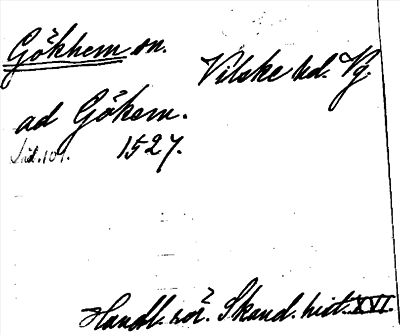 Gökhem sn. Vilske hd. Vg.
ad Gökem.
Sid. 101. 1527.
Handl. rör. Skand. hist. XVI.